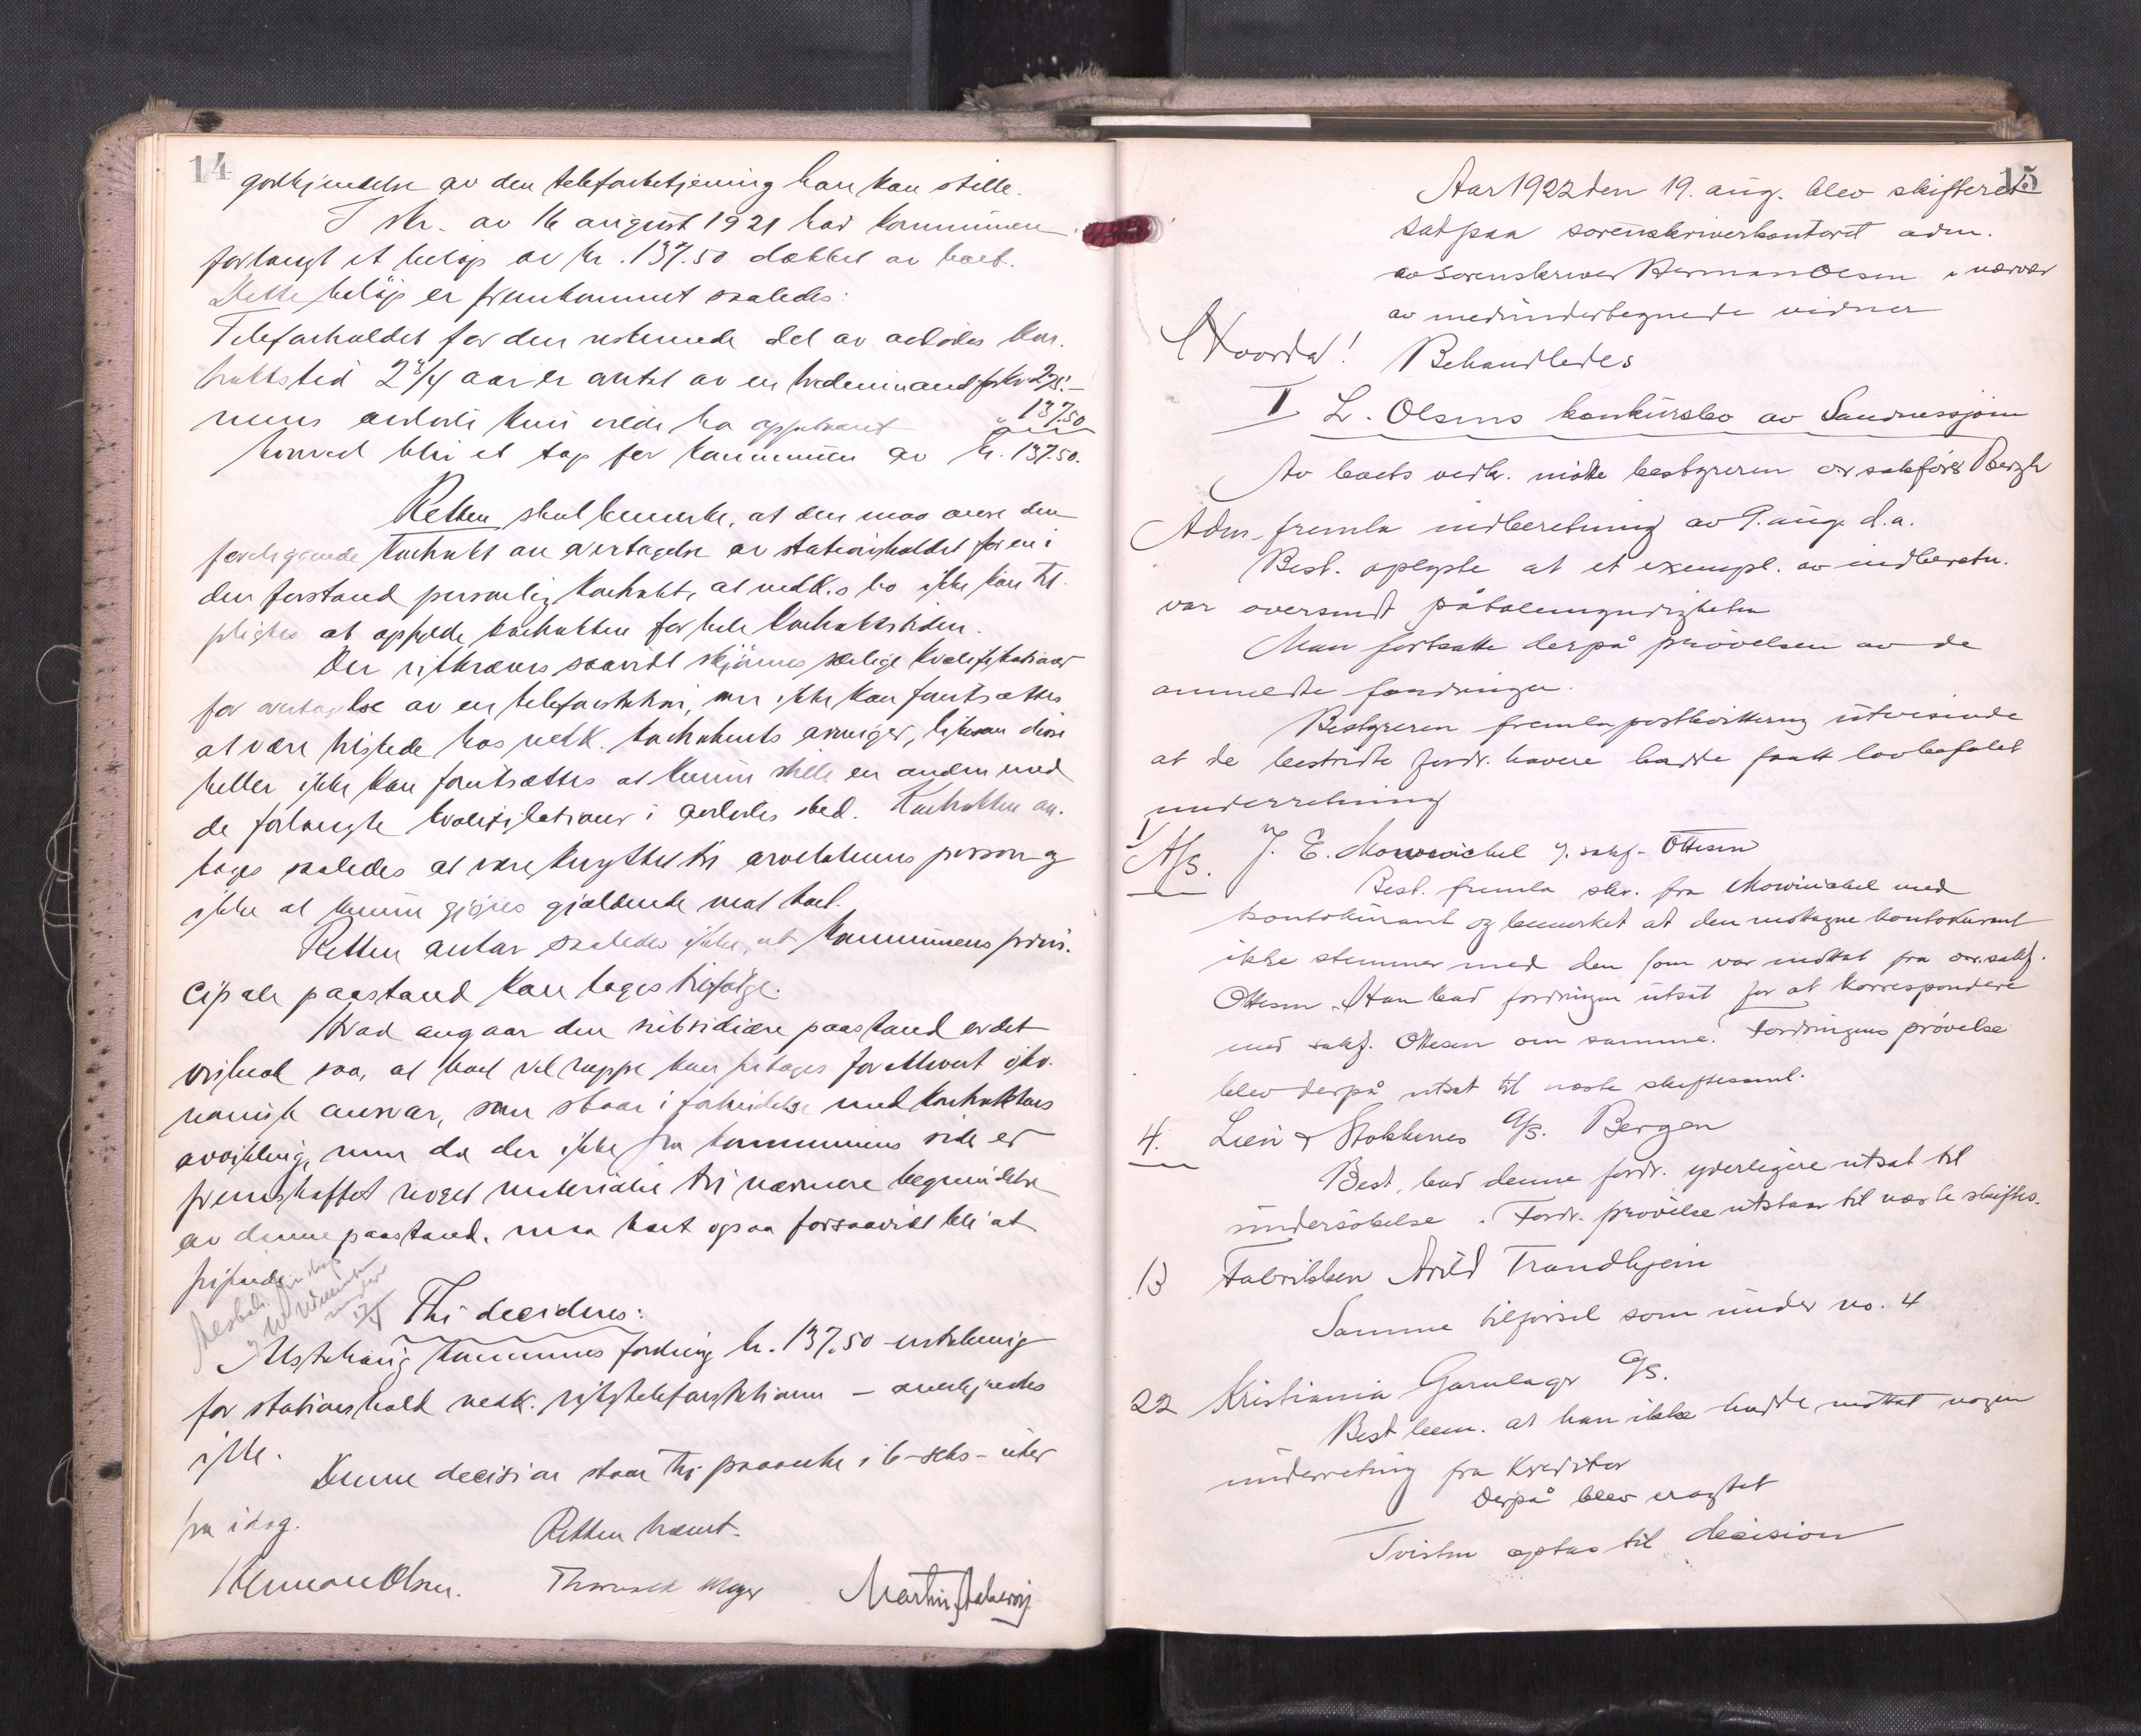 14
godkjendelse av den telefonbetjening han kan stille.
I skr. av 16 august 1921 har kommunen
forlangt et beløp av kr. 137.50 dækket av boet.
Dette beløp er fremkommet saaledes:
Telefonholdet for den resterende del av avdødes kon-
traktstid 2 3/4 aar er antat av en tredjemand for kr. 275.-
mens avdøde kun vilde ha oppebaaret " 137.50
hvorved blir et tap for kommunen av kr. 137.50.
Retten skal bemerke, at den maa anse den
foreliggende kontrakt om overtagelse av stationsholdet for en i
den forstand personlig kontrakt, at vedk.s bo ikke kan til-
pligtes at opfylde kontrakten for hele kontraktstiden.
Der utkræves saavidt skjønnes særlige kvalifikationer
for overtagelse av en telefonstation, som ikke kan forutsættes
at være tilstede hos vedk. kontrahents arvinger, likesom disse
heller ikke kan forutsættes at kunne stille en anden med
de forlangte kvalifikationer i avdødes sted. Kontrakten an-
tages saaledes at være knyttet til arveladerens person og
ikke at kunne gjøres gjældende mot boet.
Retten antar saaledes ikke, at kommunens prin-
cipale paastand kan tages tilfølge.
Hvad angaar den subsidiære paastand er det
vistnok saa, at boet vel neppe kan fritages for ethvert øko-
nomisk ansvar, som staar i forbindelse med kontraktens
avvikling, men da der ikke fra kommunens side er
fremskaffet noget materiale til nærmere begrundelse
av denne paastand, maa boet ogsaa forsaavidt bli at
frifinde.
Thi decideres:
Alstahaug kommunes fordring kr. 137.50 erstatning
for stationshold vedk. rikstelefonstationen – anerkjendes
ikke.
Denne decision staar til paaanke i 6 – seks – uker
fra idag.
Retten hævet.
Herman Olsen. Thorvald Meyer Martin
15
Aar 1922 den 19. aug. blev skifteret
sat paa sorenskriverkontoret adm.
av sorenskriver Herman Olsen i nærvær
av medundertegnede vidner
Hvorda! Behandledes
I L. Olsens konkursbo av Sandnessjøen
For boets vedk. møtte bestyreren o.r. sakfører Bergh
Adm. fremla indberetning av 9. aug. d.a.
Best. oplyste at et exempl. av indberetn.
var oversendt påtalemyndigheten
Man fortsatte derpå prøvelsen av de
anmeldte fordringer.
Bestyreren fremla postkvittering utvisende
at de bestridte fordr. havere hadde faatt lovbefalet
underretning
1/ A/S. J. E. Mowinckel v. sakf. Ottesen
Best. fremla skr. fra Mowinckel med
kontokurant og bemerket at den mottagne kontokurant
ikke stemmer med den som var mottat fra o.r.sakf.
Ottesen. Han bad fordringen utsat for at korrespondere
med sakf. Ottesen om samme. Fordringens prøvelse
blev derpå utsat til næste skiftesaml.
4. Lien & Stokkenes A/S. Bergen
Best. bad denne fordr. yderligere utsat til
undersøkelse. Fordr. prøvelse utstaar til næste skiftes.
13 Fabrikken Arild Trondhjem
Samme tilførsel som under no. 4
22 Kristiania Garnlager A/S.
Best. bem. at han ikke hadde mottat nogen
underretning fra kreditor
Derpå blev eragtet
Tvisten optas til decision